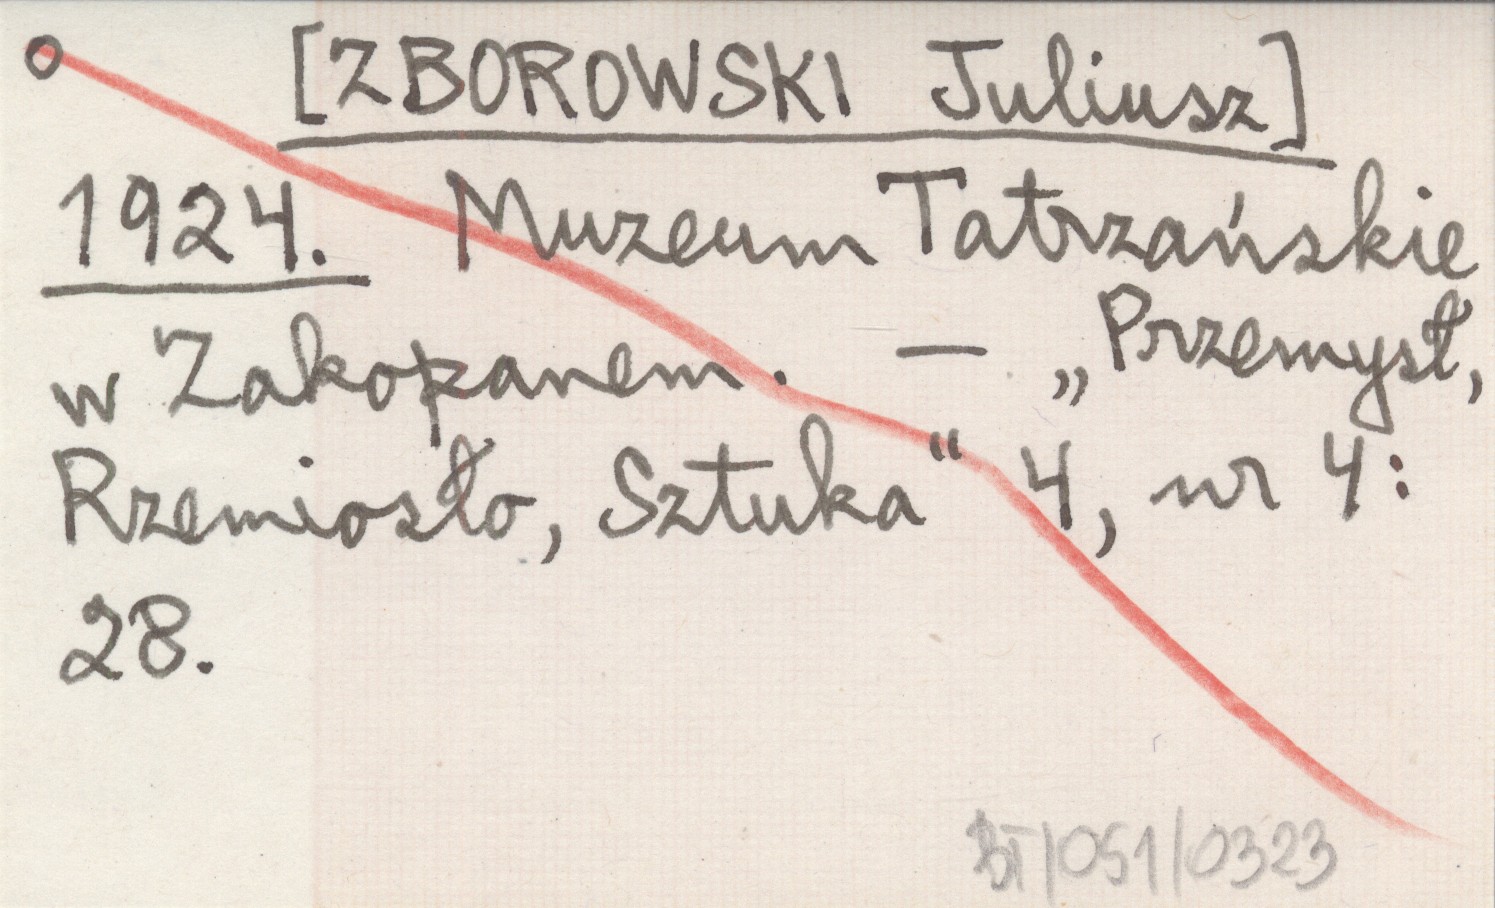 [ZBOROWSKI Juliusz]
1924. Muzeum Tatrzańskie
w Zakopanem. — „Przemysł,
Rzemiosło, Sztuka“ 4, nr 4:
28.
BT/051/0323